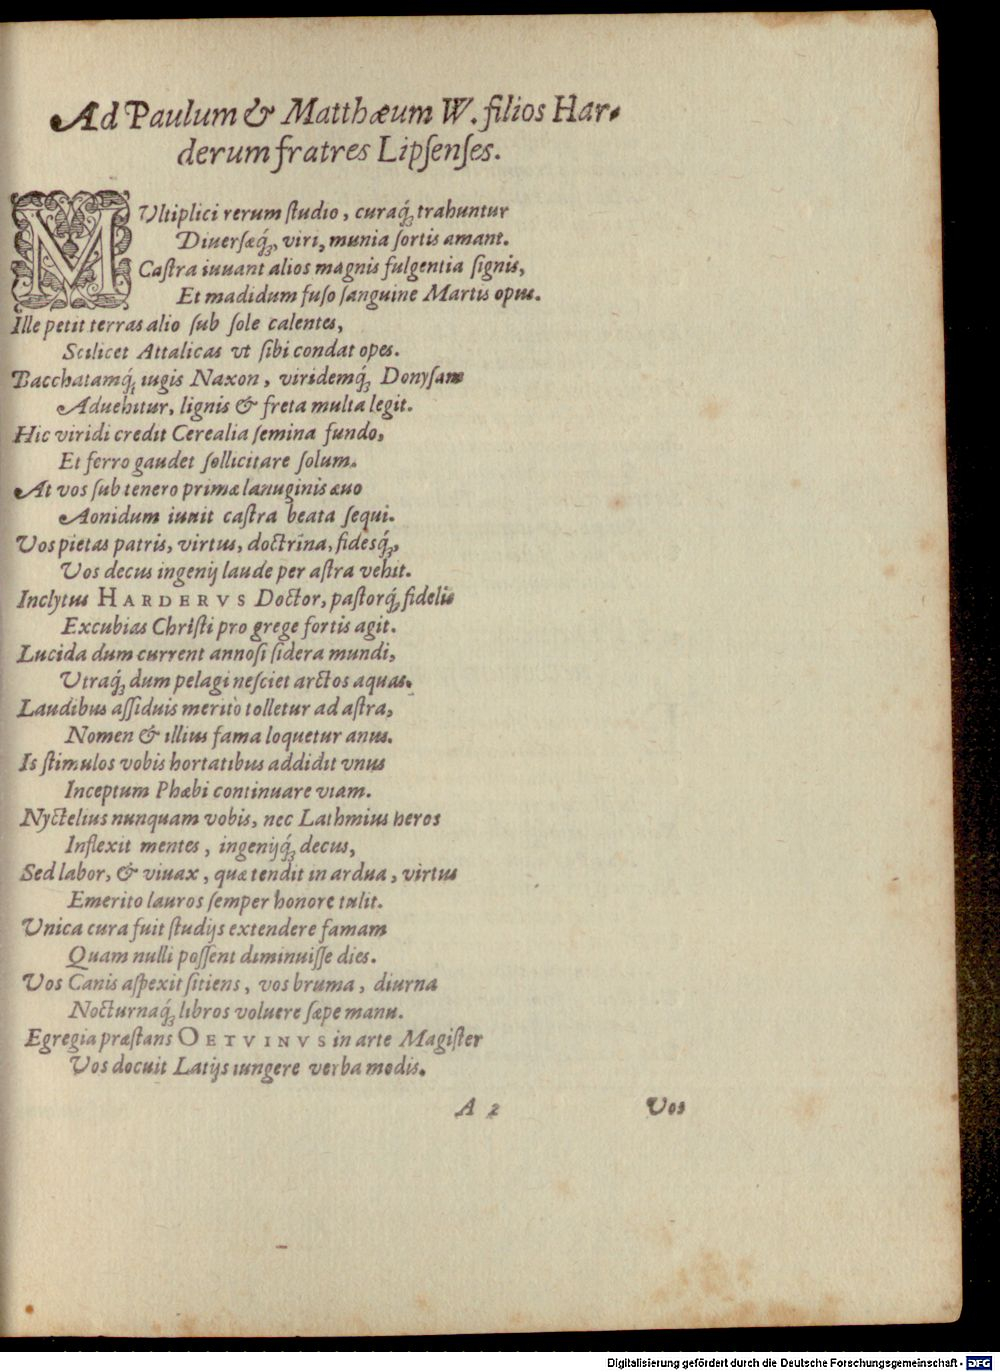 Ad Paulum & Matthæum W. filios Har-
derum fratres Lipſenſes.
MVltiplici rerum ſtudio, curaq́ꝫ trahuntur
Diuerſæq́ꝫ, viri, munia ſortis amant.
Caſtra iuuant alios magnis fulgentia ſignis,
Et madidum fuſo ſanguine Martis opus.
Ille petit terras alio ſub ſole calentes,
Scilicet Attalicas vt ſibi condat opes.
Bacchatamq́ꝫ iugis Naxon, viridemq́ꝫ Donyſam
Aduehitur, lignis & freta multa legit.
Hic viridi credit Cerealia ſemina fundo,
Et ferro gaudet ſollicitare ſolum.
At vos ſub tenero primæ lanuginis æuo
Aonidum iuuit caſtra beata ſequi.
Vos pietas patris, virtus, doctrina, fidesq́ꝫ,
Vos decus ingenij laude per aſtra vehit.
Inclytus HARDERVS Doctor, paſtorq́ꝫ fidelis
Excubias Chriſti pro grege fortis agit.
Lucida dum current annoſi ſidera mundi,
Vtraq́ꝫ dum pelagi neſciet arctos aquas.
Laudibus aſſiduis meritò tolletur ad aſtra,
Nomen & illius fama loquetur anus.
Is ſtimulos vobis hortatibus addidit vnus
Inceptum Phæbi continuare viam.
Nyctelius nunquam vobis, nec Lathmius heros
Inflexit mentes, ingenijq́ꝫ decus,
Sed labor, & viuax, quæ tendit in ardua, virtus
Emerito lauros ſemper honore tulit.
Vnica cura fuit ſtudijs extendere famam
Quam nulli poſſent diminuiſſe dies.
Vos Canis aſpexit ſitiens, vos bruma, diurna
Nocturnaq́ꝫ libros voluere ſæpe manu.
Egregia præſtans OETVINVS in arte Magiſter
Vos docuit Latijs iungere verba modis.
A 2 Vos
Digitalisierung gefördert durch die Deutsche Forschungsgemeinschaft - DFG